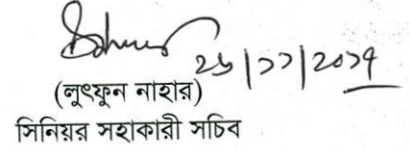 ২৬/১১/২০১৭
(লুৎফুন নাহার)
সিনিয়র সহকারী সচিব